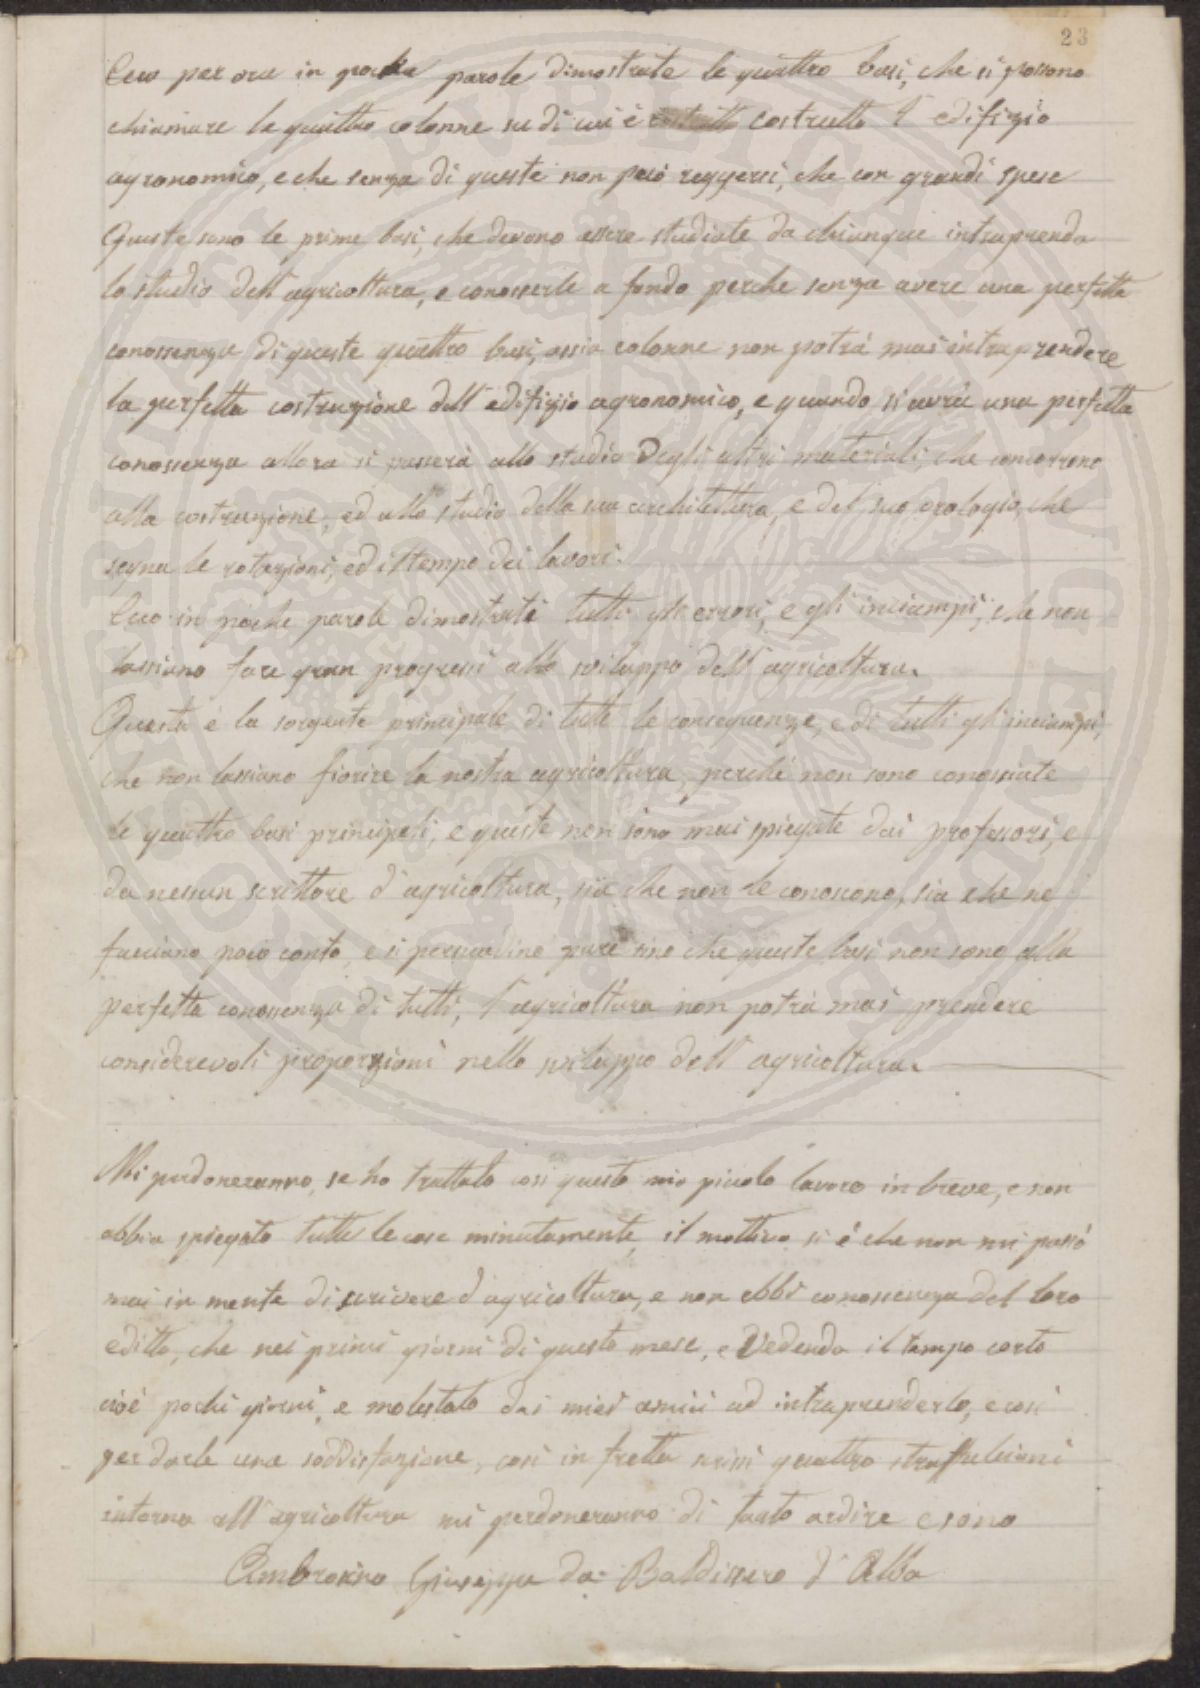 23
Ecco per ora in poche parole dimostrate le quattro basi, che si possono
chiamare le quattro colonne su di cui è costrutto l'edifizio
agronomico, e che senza di queste non può reggersi, che con grandi spese
Queste sono le prime basi, che devono essere studiate da chiunque intraprenda
lo studio dell'agricoltura, e conosserle a fondo perche senza avere una perfetta
conossenza di queste quattro basi, ossia colonne non potrà mai intraprendere
la perfetta costruzione dell'edifizio agronomico, e quando si avrà una perfetta
conossenza allora si passerà allo studio degli altri materiali, che concorrono
alla costruzione, ed allo studio della sua architettura, e del suo orologio, che
segna le rotazioni, ed il tempo dei lavori.
Ecco in poche parole dimostrati tutti gli errori, e gli inciampi, che non
lassiano fare gran progressi allo sviluppo dell'agricoltura.
Questa è la sorgente principale di tutte le conseguenze, e di tutti gl'inciampi,
che non lassiano fiorire la nostra agricoltura, perchè non sono conossiute
le quattro basi principali, e queste non sono mai spiegate dai professori, e
da nessun scrittore d'agricoltura, sia che non le conoscono, sia che ne
facciano poco conto, e si persuadino pure sino che queste basi non sono alla
perfetta conossenza di tutti, l'agricoltura non potrà mai prendere
considerevoli proporzioni nello sviluppo dell'agricoltura.
Mi perdoneranno, se ho trattato così questo mio piccolo lavoro in breve, e non
abbia spiegato tutte le cose minutamente, il mottivo si è che non mi passò
mai in mente di scrivere d'agricoltura, e non ebbi conossenza del loro
editto, che nei primi giorni di questo mese, e vedendo il tempo corto
cioè pochi giorni, e molestato dai miei amici ad intraprenderlo, e così
per darle una soddisfazione, così in fretta scrissi quattro strafulcioni
intorno all'agricoltura mi perdoneranno di tanto ardire e sono
Ambrosino Giuseppe da Baldissero d'Alba